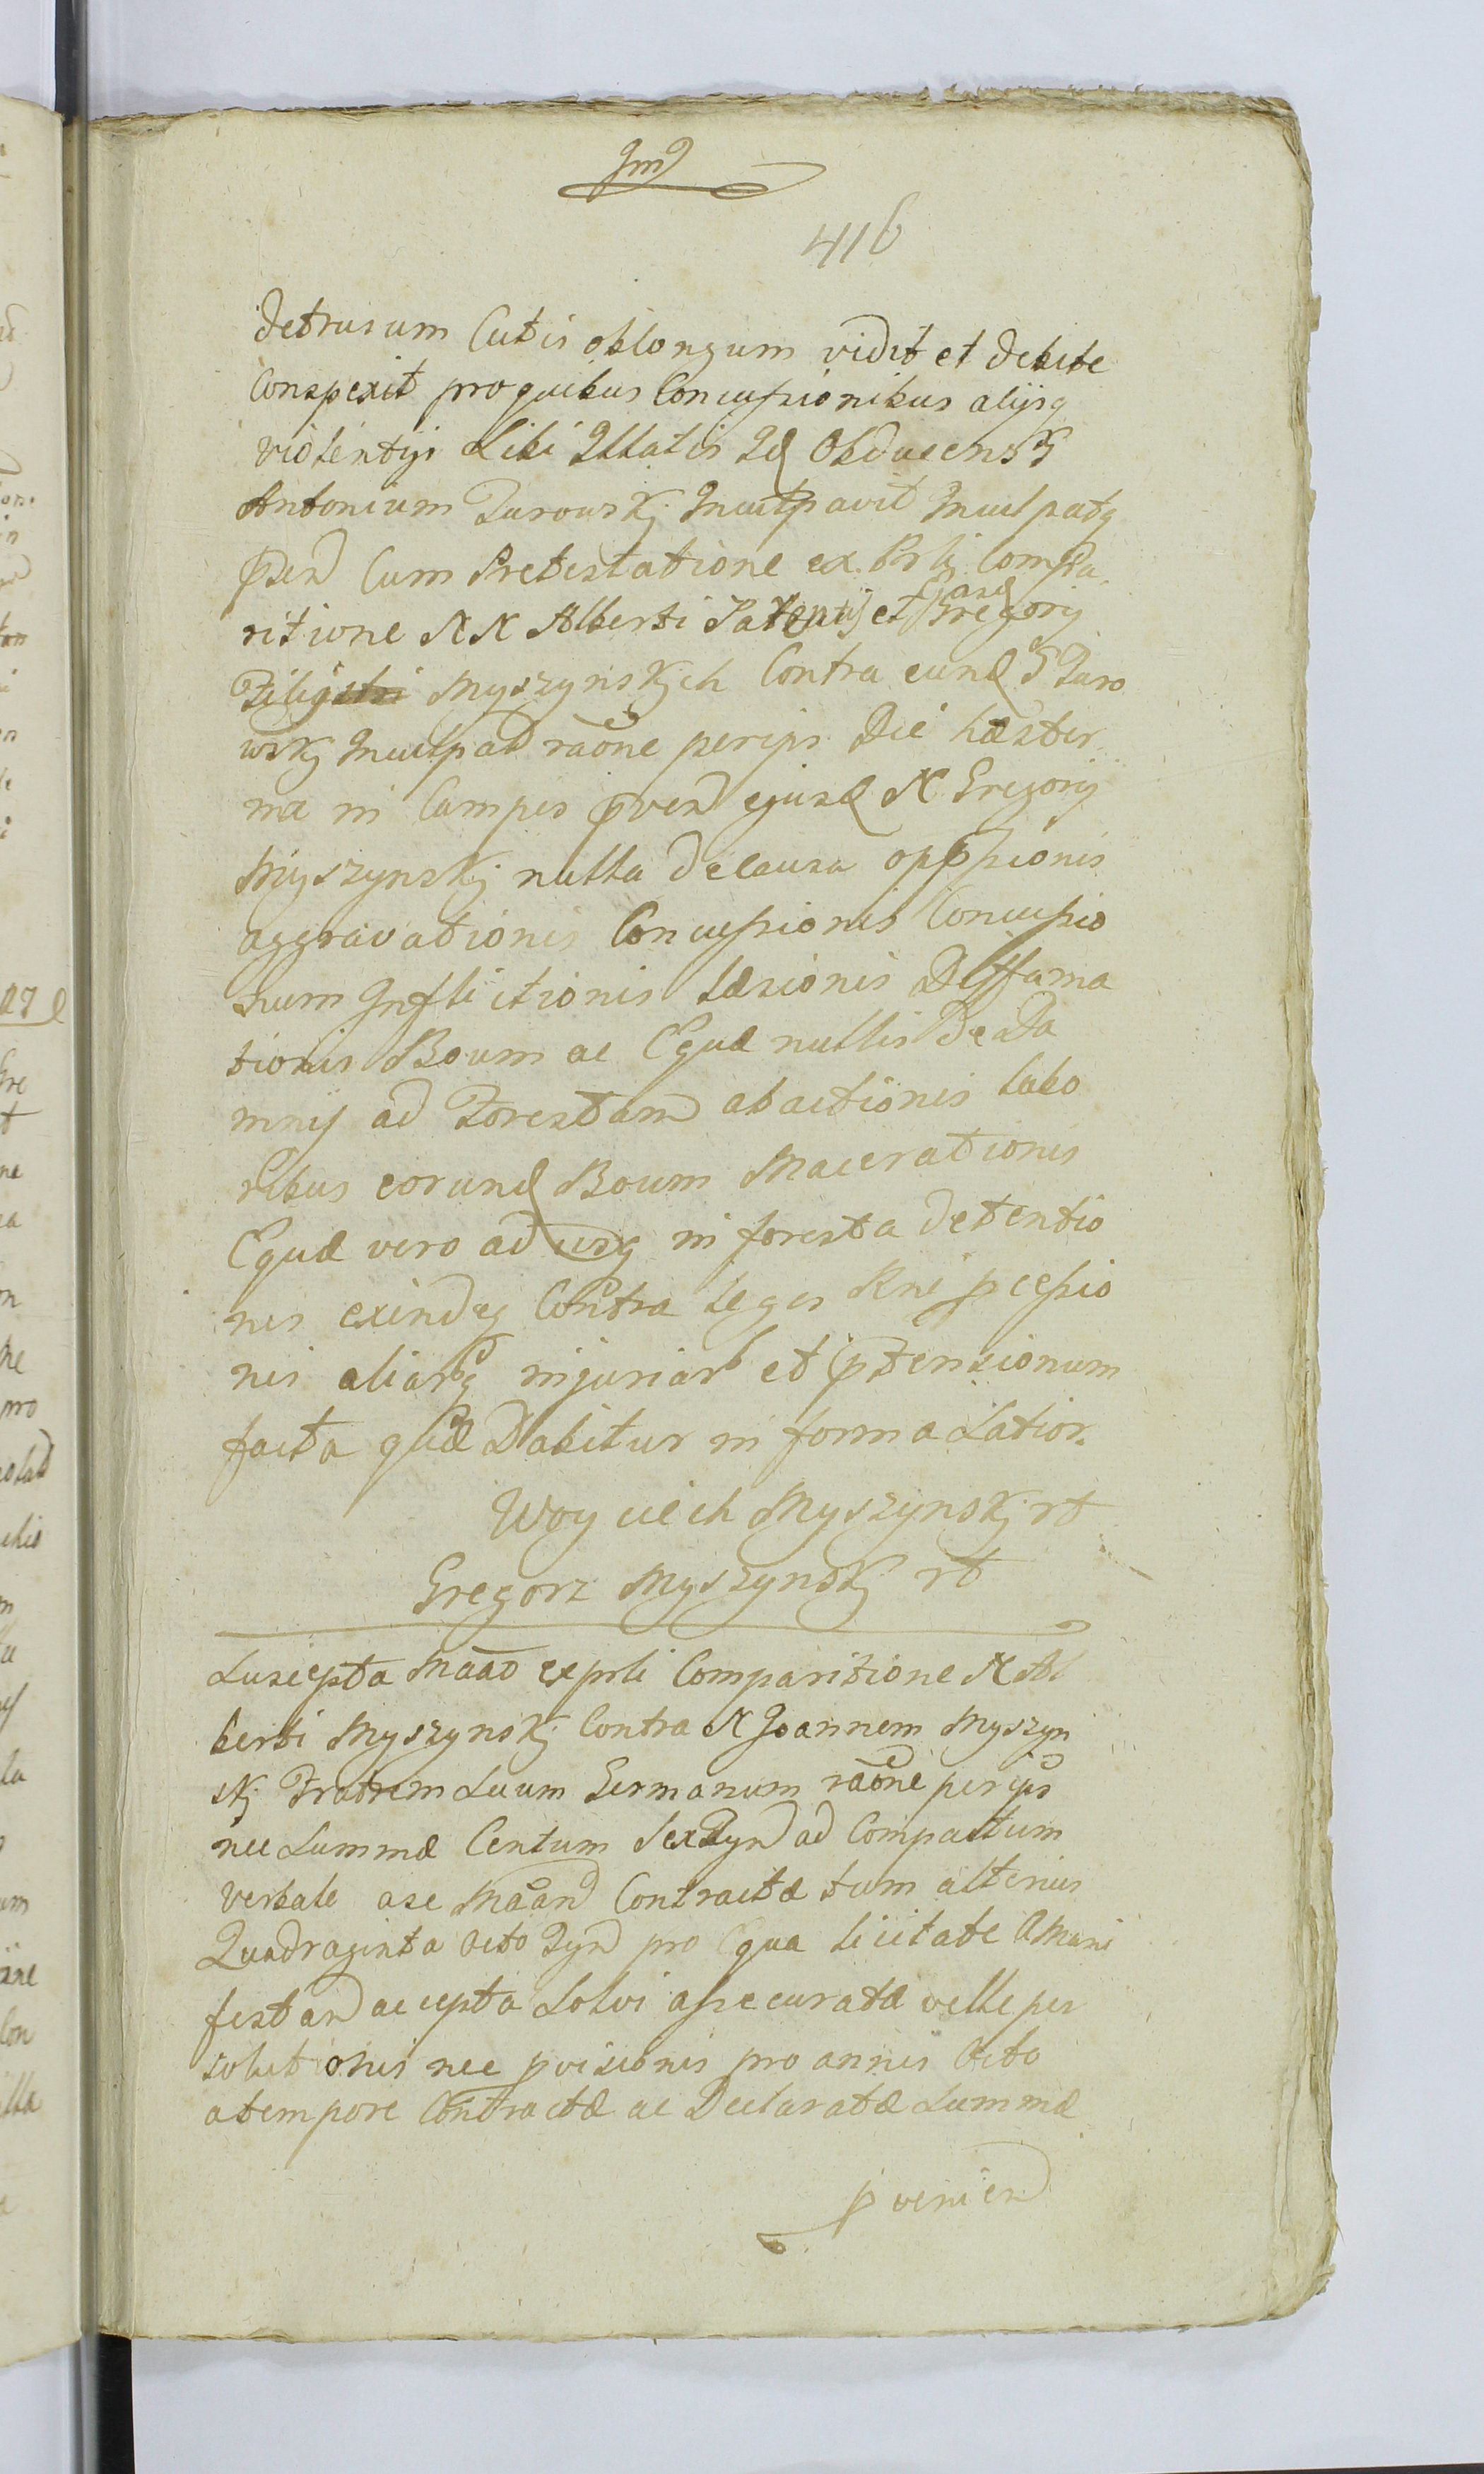 Jm
416
detrusum Cutis oblongum vidit et debite
Conspexit pro quibus Concussionibus alijsq
violentijs Sibi Illatis Id Obducens G
Antonium Turowskj Inculpavit Inculpatq
Cum Protestatione ex Prli Compa
ritione NN Alberti Patentis et Gregorij
Filij Myszynskich Contra eund G Turo
wskj Inculpat raone perips Die hæster
na in Campis ejusd N Gregorij
Myszynskj nulla de causa oppssionis
aggravationis Concussionis Concussio
num Inflictionis Læsionis Diffama
tionis Boum ac Equæ nullis de Da
mnij ad Forestam abactionis labo
ribus eorund Boum Macerationis
Equæ vero ad usq in foresta detentio
nis exindeq Contra leges Rni pcessio
nis aliarq injuriar et ptensionum
facta quæ Dabitur in forma Latior.
Woyciech Myszynskj rt
Gregorz Myszynskj rt
Suscepta Maão ex prli Comparitione N Al
berti Myszynskj Contra N Joannem Myszyn
skj Fratrem Suum Germanum raone perips
nec Summæ Centum Sex Tyn ad Compactum
verbale a se Maan Contractæ tum alterius
Quadraginta Octo Tyn pro Equa licitate a Mani
festan accepta Solvi assecuratæ velle per
solutionis nec pvisionis pro annis Octo
a tempore Contractæ ac Declaratæ Summæ
pvenien